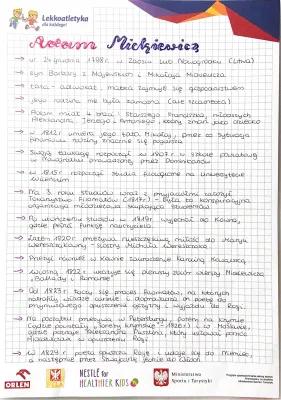 Lekkoatletyka
dla każdego!
Adam Mickiewicz
→ ur. 24 grudnia 1798 r. w Zaosiu lub Nowogródku (Litwa)
→ syn Barbary z Majewskich i Mikołaja Mickiewicza
→ tata - adwokat, matka zajmuje się gospodarstwem
→ Jego rodzina nie była zamożna (ale szlachecka)
→ Adam miał 4 braci, starszego Franciszka, młodszych
Aleksandra, Jerzego i Antoniego, który zmarł jako dziecko
→ w 1812 r. umiera jego tata Mikołaj, przez co sytuacja
finansowa rodziny znacznie się pogarsza
→ Swoją edukację rozpoczął w 1807 r. w szkole
w Nowogródku prowadzonej przez Dominikanów
→ W 1815 r. rozpoczął studia filologiczne na uniwersytecie
wileńskim
→ Na 3. roku studiów wraz z przyjaciółmi założył
Towarzystwo Filomatów (1817 r.) - była to konspiracyjna
organizacja młodzieżowa skupiająca studentów
→ Po ukończeniu studiów w 1819 r. wyjechał do Kowna,
gdzie pełnił funkcję nauczyciela
→ Latem 1820 r. przeżywa nieszczęśliwą miłość do Maryli
Wereszczakówny, siostry Michała Wereszczaka
→ Przeżył również w Kownie zauroczenie Karoliną Kowalską
→ Wiosną 1822 r. ukazuje się pierwszy zbiór wierszy Mickiewicza
„Ballady i Romanse"
→ Od 1823 r. toczy się proces Filomatów, na których
→ Na początku przebywa w Petersburgu, potem na Krymie
(gdzie powstały "Sonety krymskie" - 1826 r.) i w Moskwie,
gdzie poznaje Aleksandra Puszkina, który
→ W 1829 r. poeta opuszcza Rosję i udaje się do Niemiec,
a następnie przez Szwajcarię jedzie do Włoch
ORLEN
PZLA
NESTLÉ for
HEALTHIER KIDS
Ministerstwo
Sportu i Turystyki